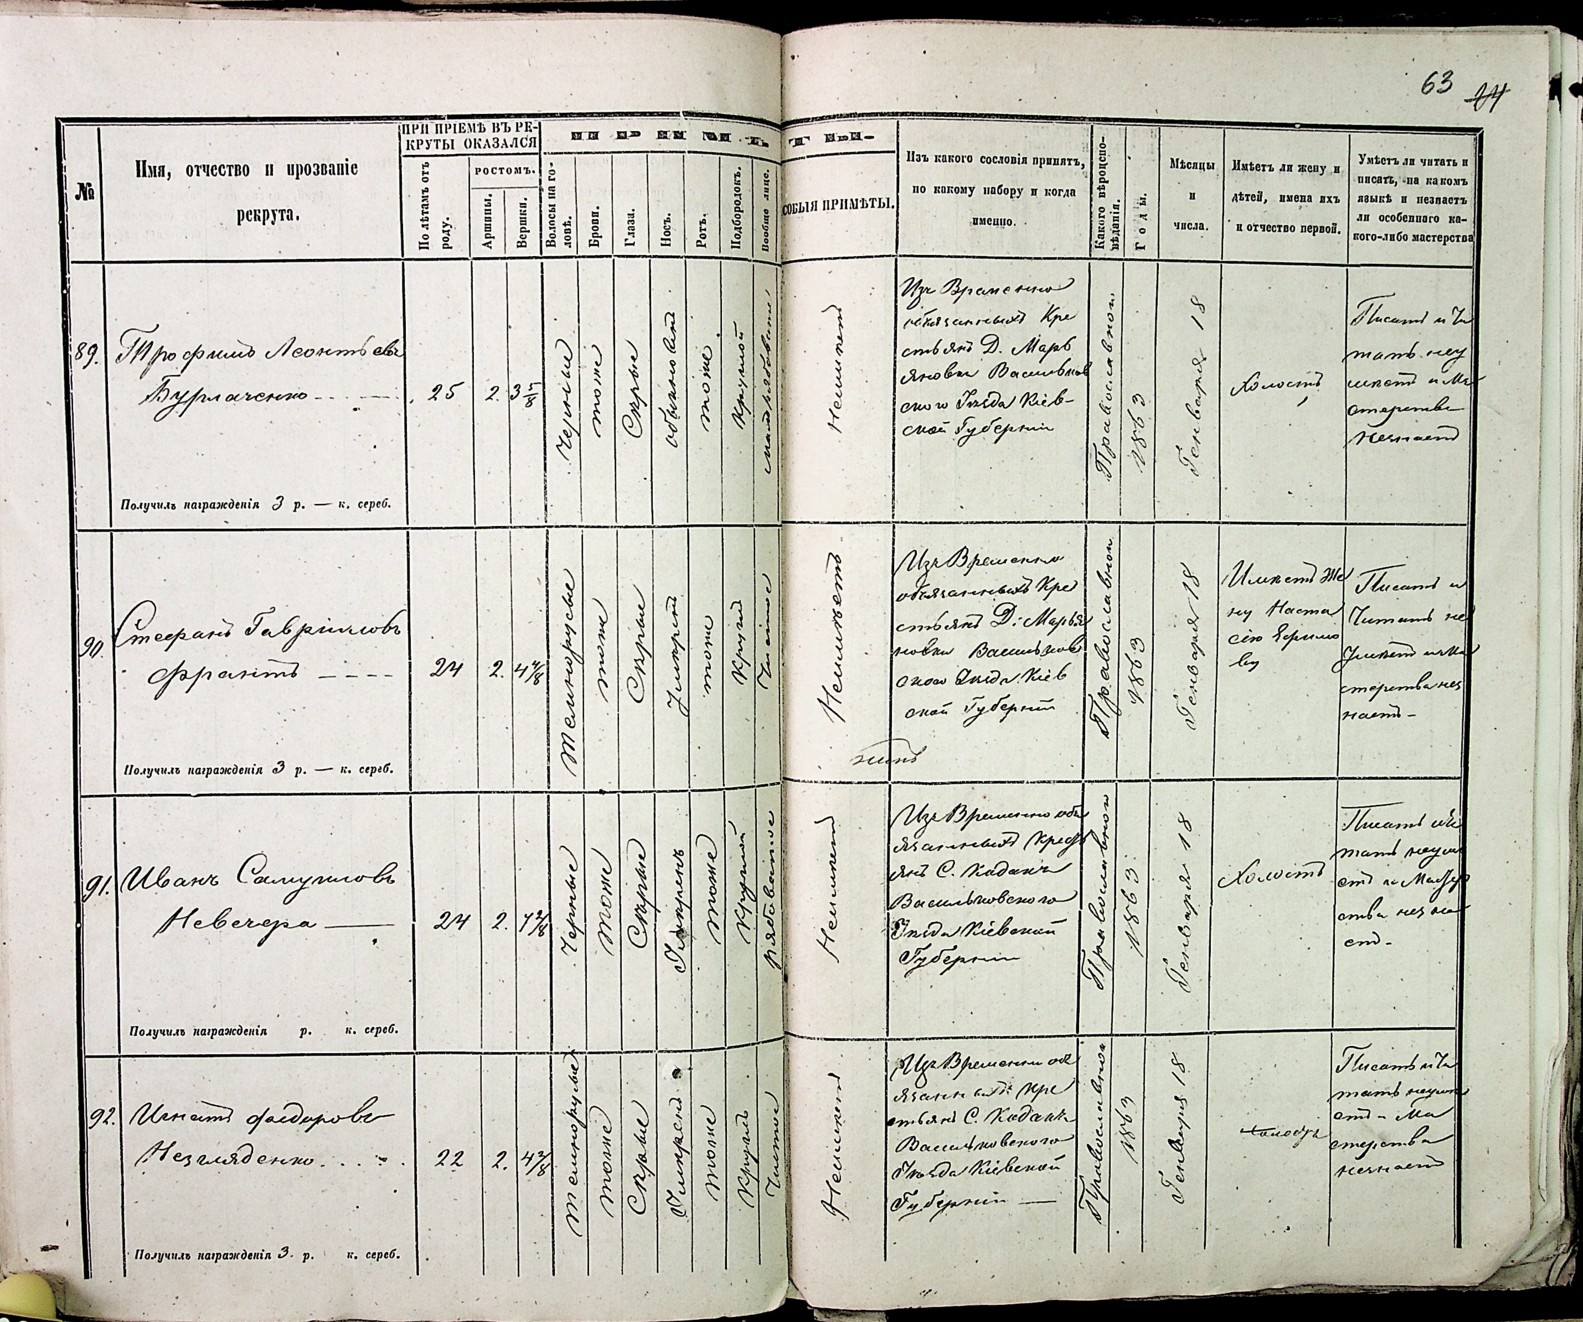 63
44
№
Имя, отчество и прозваніе
рекрута.
ПРИ ПРІЕМѢ ВЪ РЕ-
КРУТЫ ОКАЗАЛСЯ
По лѣтамъ отъ
роду.
РОСТОМЪ.
Аршины.
Вершки.
ПРИМѢТЫ.
Волосы на го-
ловѣ.
Брови.
Глаза.
Носъ.
Ротъ.
Подбородокъ.
Вообще лице.
ОСОБЫЯ ПРИМѢТЫ.
Изъ какого сословія принятъ,
по какому набору и когда
именно.
Какого вѣроиспо-
вѣданія.
Годы.
Мѣсяцы
и
числа.
Имѣетъ ли жену и
дѣтей, имена ихъ
и отчество первой.
Умѣетъ ли читать и
писать, на какомъ
языкѣ и незнаетъ
ли особеннаго ка-
кого-либо мастерства
89.
Трофимъ Леонтьевъ
Бурлаченко
Получилъ награжденія 3 р. — к. сереб.
25
2.
3 5/8
Черные
тоже
Сѣрые
обыкновен
тоже
Круглой
Неимѣетъ
Изъ Временно
обязанныхъ Кре
стьянъ Д. Марь
яновки Васильков
скаго Уѣзда Кіев-
ской Губерніи
Православнаго
1863
Генваря 18
Холостъ
Писать и Чи
тать неу
мѣетъ и Ма
стерства
Незнаетъ
90.
Стефанъ Гавріиловъ
Франтъ
Получилъ награжденія 3 р. — к. сереб.
24
2.
Темнорусые
тоже
Сѣрые
Умѣрен
тоже
Кругл
Чистое
Неимѣетъ
Изъ Временно
обязанныхъ Кре
стьянъ Д. Марья
новки Васильков
скаго Уѣзда Кіев
ской Губерніи
Православнаго
1863
Генваря 18
Имѣетъ Же
ну Наста
сію Ярино
ву
Писать и
Читать не
Умѣетъ и Ма
стерства нез
наетъ -
91.
Иванъ Самуиловъ
Невечера
Получилъ награжденія р. к. сереб.
24
2.
Черные
тоже
Сѣрые
Умѣренъ
тоже
Круглой
рябоватое
Неимѣетъ
Изъ Временно обя
занныхъ Кресть
янъ С. Кодаки
Васильковского
Уѣзда Кіевской
Губерніи
Православного
1863
Генваря 18
Холостъ
Писать и Чи
тать неумѣ
етъ и Мастер
ства незна
етъ -
92.
Игнатъ Федоровъ
Незгляденко
Получилъ награжденія 3 р. к. сереб.
22
2.
Темнорусые
тоже
Сѣрые
Умѣренъ
тоже
Круглъ
Чистое
Неимѣетъ
Изъ Временно обя
занныхъ Кре
стьянъ С. Кодаки
Васильковского
Уѣзда Кіевской
Губерніи
Православного
1863
Генваря 18
холостъ
Писать и Чи
тать неумѣ
етъ - Ма
стерства
незнаетъ